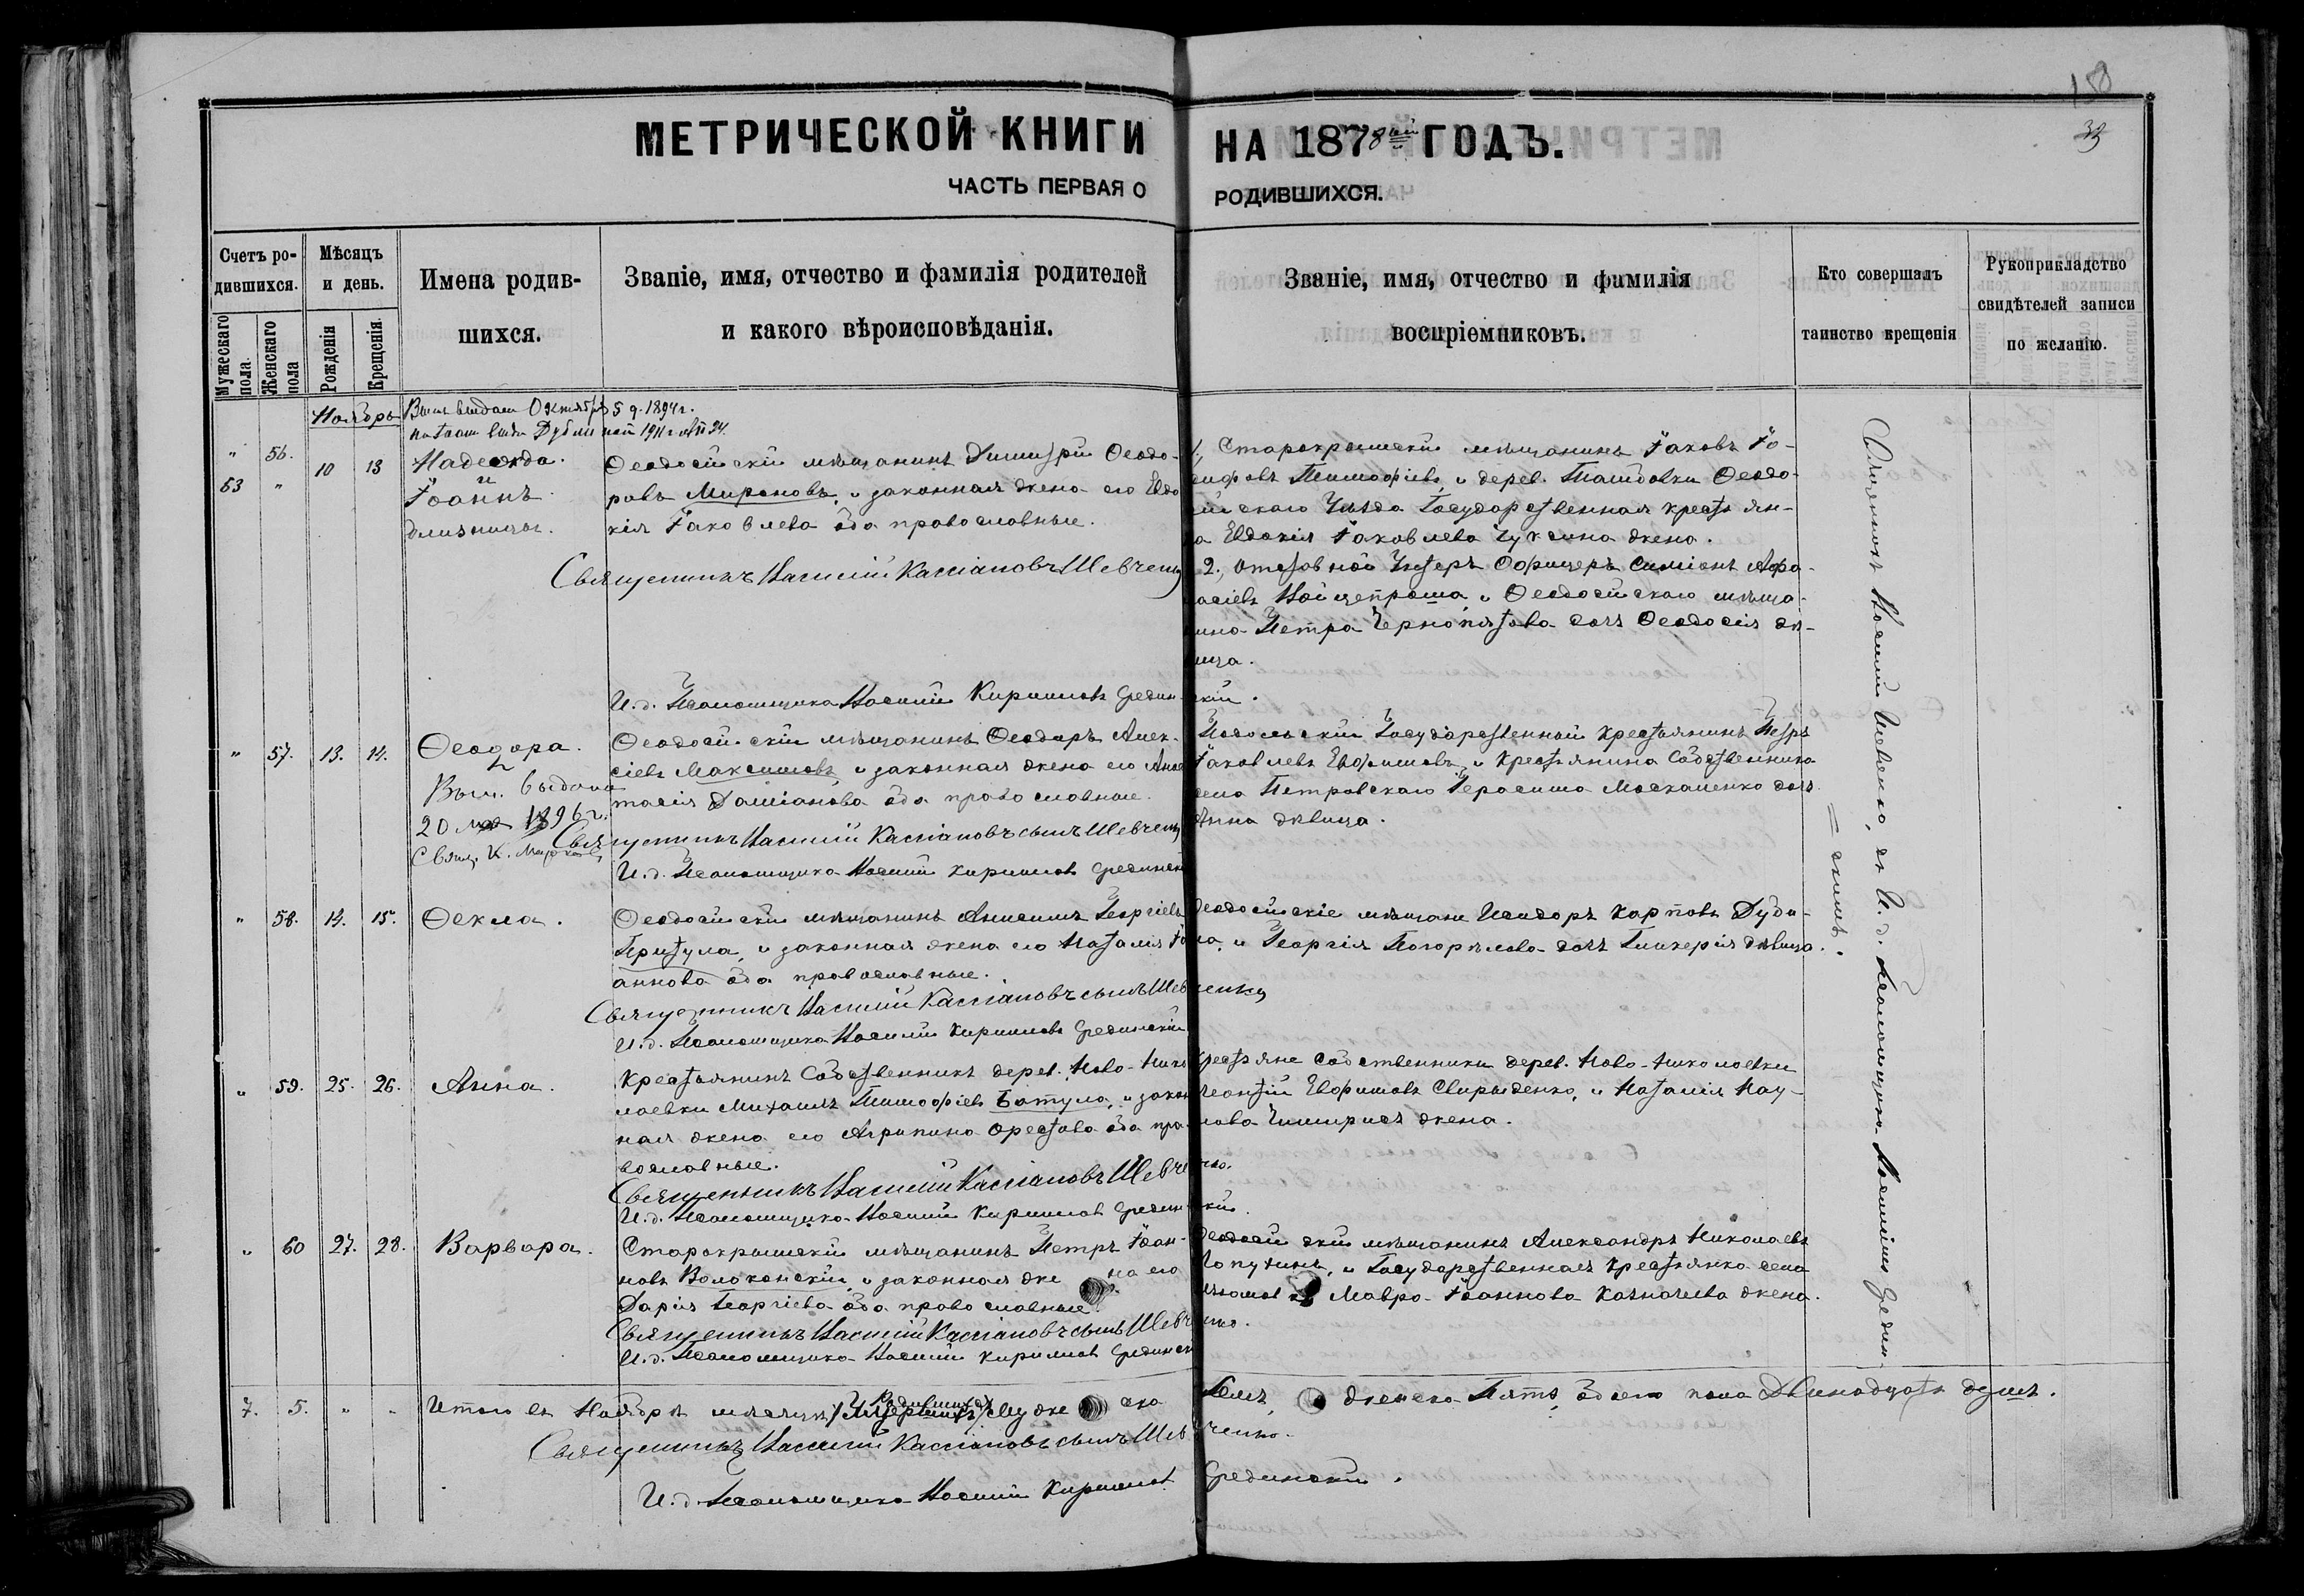 158
39
МЕТРИЧЕСКОЙ КНИГИ НА 1878ый ГОДЪ.
ЧАСТЬ ПЕРВАЯ О РОДИВШИХСЯ.
Счетъ родившихся.
Мужескаго пола
Женскаго пола
Мѣсяцъ и день.
Рожденія
Крещенія.
Имена родившихся.
Званіе, имя, отчество и фамилія родителей
и какого вѣроисповѣданія.
Званіе, имя, отчество и фамилія
воспріемниковъ.
Кто совершалъ
таинство крещенія
Рукоприкладство
свидѣтелей записи
по желанію.
Ноябрь
Октября 5 д. 1894 г.
1911 г. № 34.
" 56. 10 13 Надежда.
63 " и
Іоаннъ.
близнецы.
Ѳеодосійскій мѣщанинъ Димитрій Ѳеодо-
ровъ Мироновъ, и законная жена его Евдо
кія Іаковлева оба православные.
Священникъ Василій Кассіановъ Шевченко
И. д. Псаломщика Василій Кирилловъ Срединскій.
1, Старокрымскій мѣщанинъ Іаковъ Іо-
сифовъ Тимофѣевъ, и дерев. Ѳеодо-
сійскаго Уѣзда Государственная крестьян-
ка Евдокія Іаковлева жена.
2, Отставной Унтеръ Офицеръ Симеонъ Афа-
насіевъ и Ѳеодосійскаго мѣща-
нина Петра Чернопятова дочь Ѳеодосія дѣ-
вица.
" 57. 13. 14. Ѳеодора.
Вып. выдана
20 1896 г.
Свящ. К.
Ѳеодосійскій мѣщанинъ Ѳеодоръ Алек-
сіевъ Максимовъ, и законная жена его Анас
тасія Даміанова оба православные.
Священникъ Василій Кассіановъ сынъ Шевченко
И. д. Псаломщика Василій Кирилловъ Срединскій
Подольскій Государственный Крестьянинъ Петръ
Іаковлевъ Евфимовъ, и Крестьянина Собственника
села Петровскаго Герасима Москаленко дочь
Анна дѣвица.
" 58. 14. 15. Ѳекла.
Ѳеодосійскій мѣщанинъ Анисимъ Георгіевъ
Притула, и законная жена его Наталія Іо
аннова оба православные.
Священникъ Василій Кассіановъ сынъ Шевченко
И. д. Псаломщика Василій Кирилловъ Срединскій
Ѳеодосійскіе мѣщане Исидоръ Карповъ Дуби-
на, и Георгія Погорѣлова дочь Гликерія дѣвица.
" 59. 25. 26. Анна.
Крестьянинъ Собственникъ дерев. Ново-Нико
лаевки Михаилъ Тимофѣевъ Батула, и закон
ная жена его Агрипина Орестова оба пра-
вославные.
Священникъ Василій Кассіановъ Шевченко.
И. д. Псаломщика Василій Кирилловъ Срединскій.
Крестьяне Собственники дерев. Ново-Николаевки
Леонтій Евфимовъ Свириденко, и Наталія Нау-
мова жена.
" 60 27. 28. Варвара.
Старокрымскій мѣщанинъ Петръ Іоан-
новъ Волоконскій, и законная жена его
Дарія Георгіева оба православные.
Священникъ Василій Кассіановъ сынъ Шевченко.
И. д. Псаломщика Василій Кирилловъ Срединскій
Ѳеодосійскій мѣщанинъ Александръ Николаевъ
Лопухинъ, и Государственная Крестьянка села
Мавра Іоаннова Казначеева жена.
Священникъ Василій Шевченко, съ И. д. Псаломщика Василіемъ Средин-
= скимъ.
7. 5. " " Итого въ Ноябрѣ мѣсяцѣ родившихся мужеска семь, женска пять, обоего пола двѣнадцать душъ.
Священникъ Василій Кассіановъ сынъ Шевченко.
И. д. Псаломщика Василій Кирилловъ Срединскій.